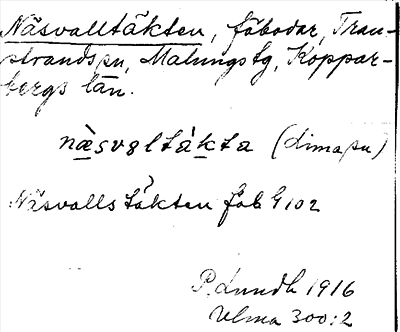 Näsvalltäkten, fäbodar, Tran-
strands sn, Malungs tg, Koppar-
bergs län.
näsvaltäkta (Lima sn)
Näsvallstäkten fäb G102
P. Lundh 1916
Ulma 300:2